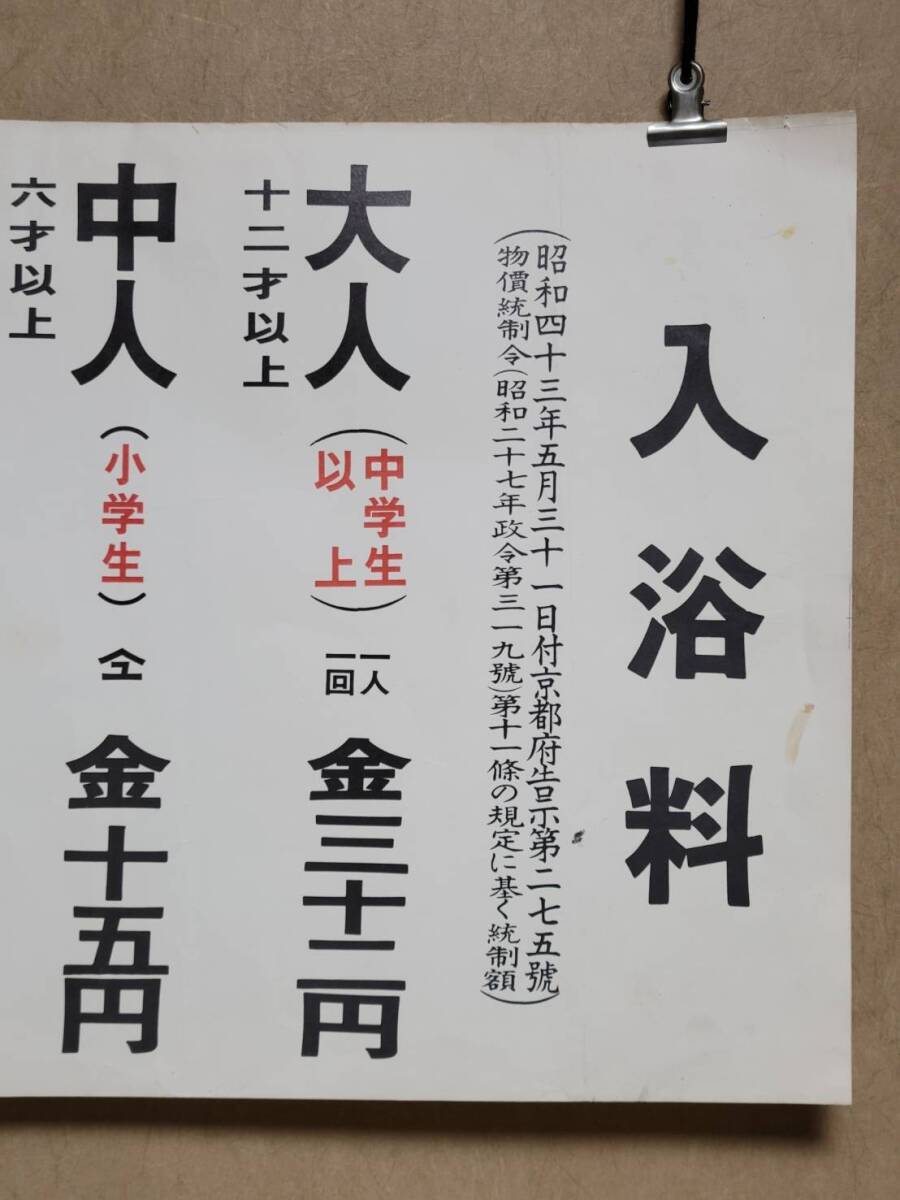 入浴料
(昭和四十三年五月三十一日付京都府告示第二七五號
物價統制令(昭和二十七年政令第三一九號)第十一條の規定に基く統制額)
大人
十二才以上
(中学生
以上)
一人
一回
金三十二円
中人
六才以上
(小学生)
仝
金十五円